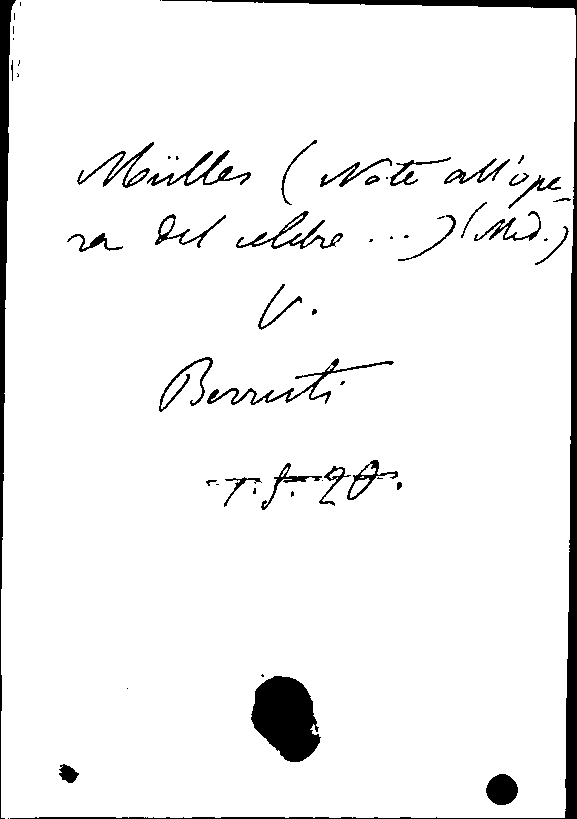 Müller (Note all'ope-
ra del celebre ...) (Med.)
V.
Berruti
7. f. 20.